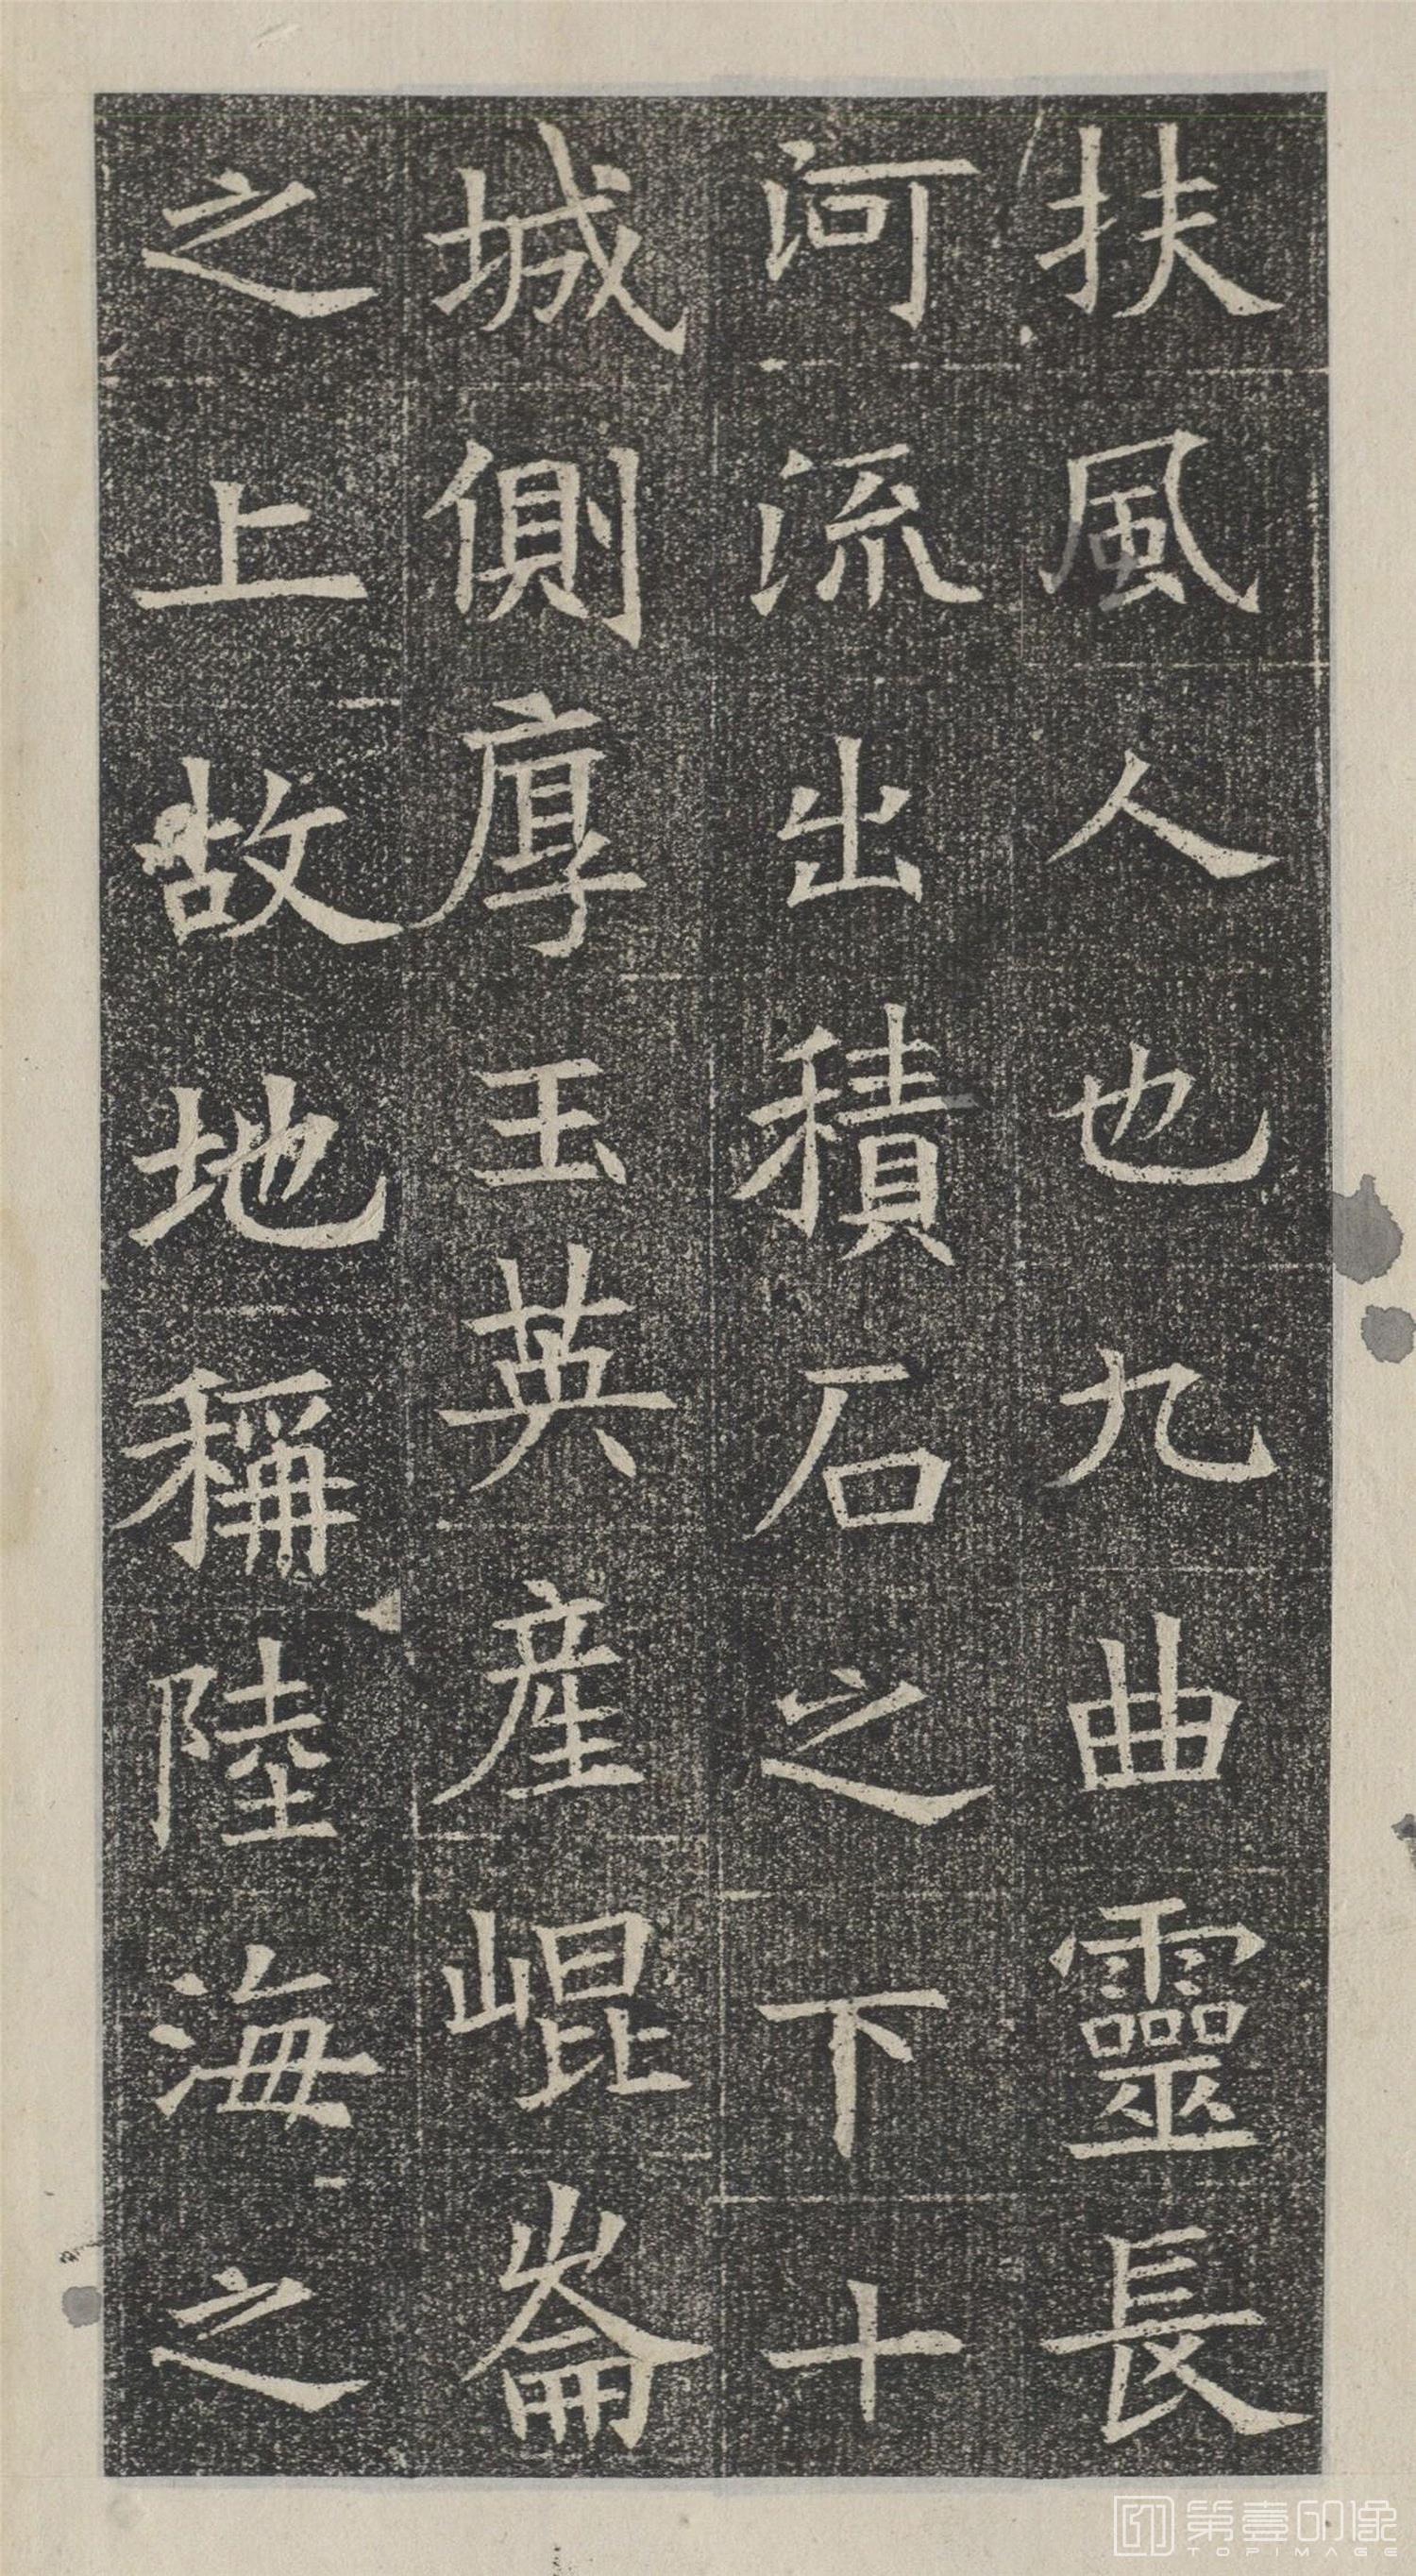 扶風人也九曲靈長
河流出積石之下十
城側厚玉英產崐崙
之上故地稱陸海之
第壹印像
TOPIMAGE